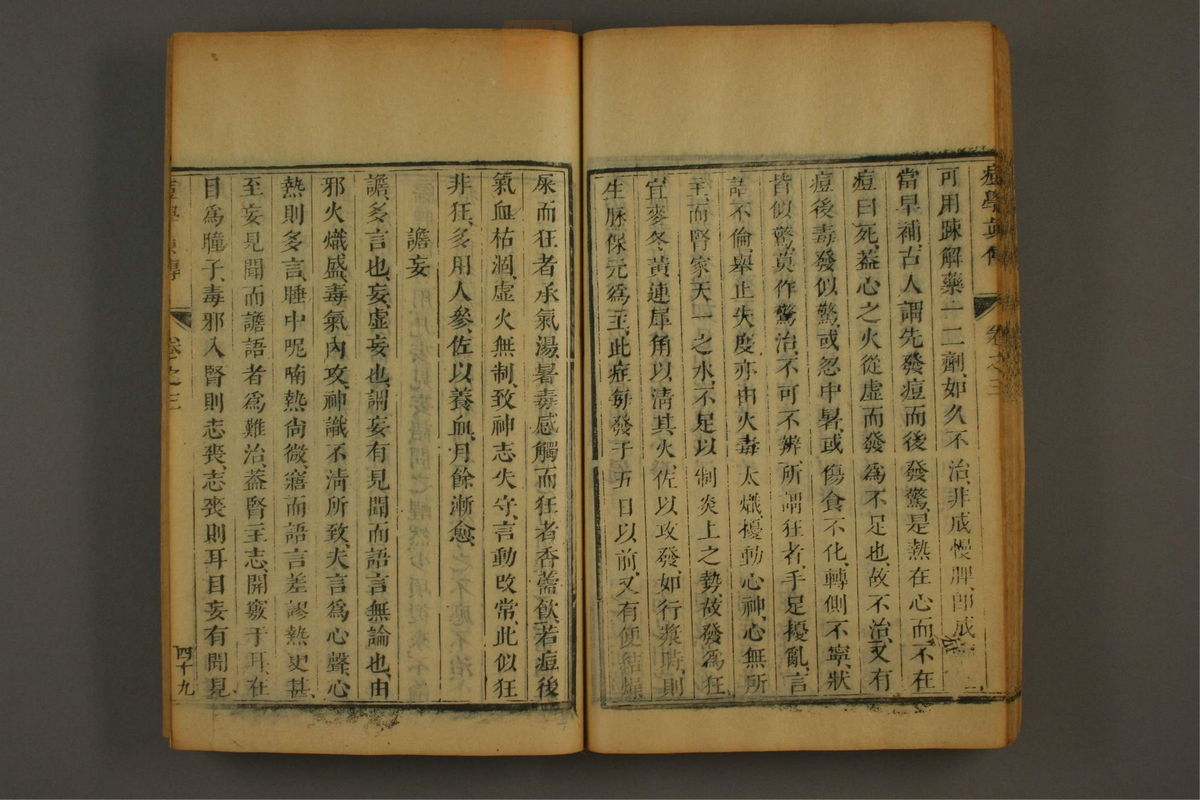 痘學真傳　卷之三
可用疎解藥一二劑如久不治非成慢脾即成
當早補古人謂先發痘而後發驚是熱在心而不在
痘曰死葢心之火從虛而發爲不足也故不治又有
痘後毒發似驚或忍中暑或傷食不化轉側不寧狀
皆似驚莫作驚治不可不辨所謂狂者手足擾亂言
語不倫舉止失度亦由火毒太熾擾動心神心無所
主而腎家天一之水不足以制炎上之勢故發爲狂
宜麥冬黃連犀角以清其火佐以攻發如行漿時則
生脉保元爲主此症每發于五日以前又有便結煩
屎而狂者承氣湯暑毒感觸而狂者香薷飲若痘後
氣血枯涸虛火無制致神志失守言動改常此似狂
非狂多用人參佐以養血月餘漸愈
譫妄
譫多言也妄虛妄也謂妄有見聞而語言無論也由
邪火熾盛毒氣內攻神識不清所致夫言爲心聲心
熱則多言睡中呢喃熱尙微寤而語言差謬熱更甚
至妄見聞而譫語者爲難治葢腎主志開竅于耳在
目爲瞳子毒邪入腎則志喪志喪則耳目妄有聞見
痘學真傳　卷之三　四十九